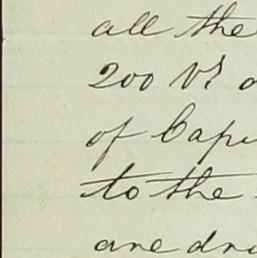 all the
200 Vs
of Cap
to the
are dri